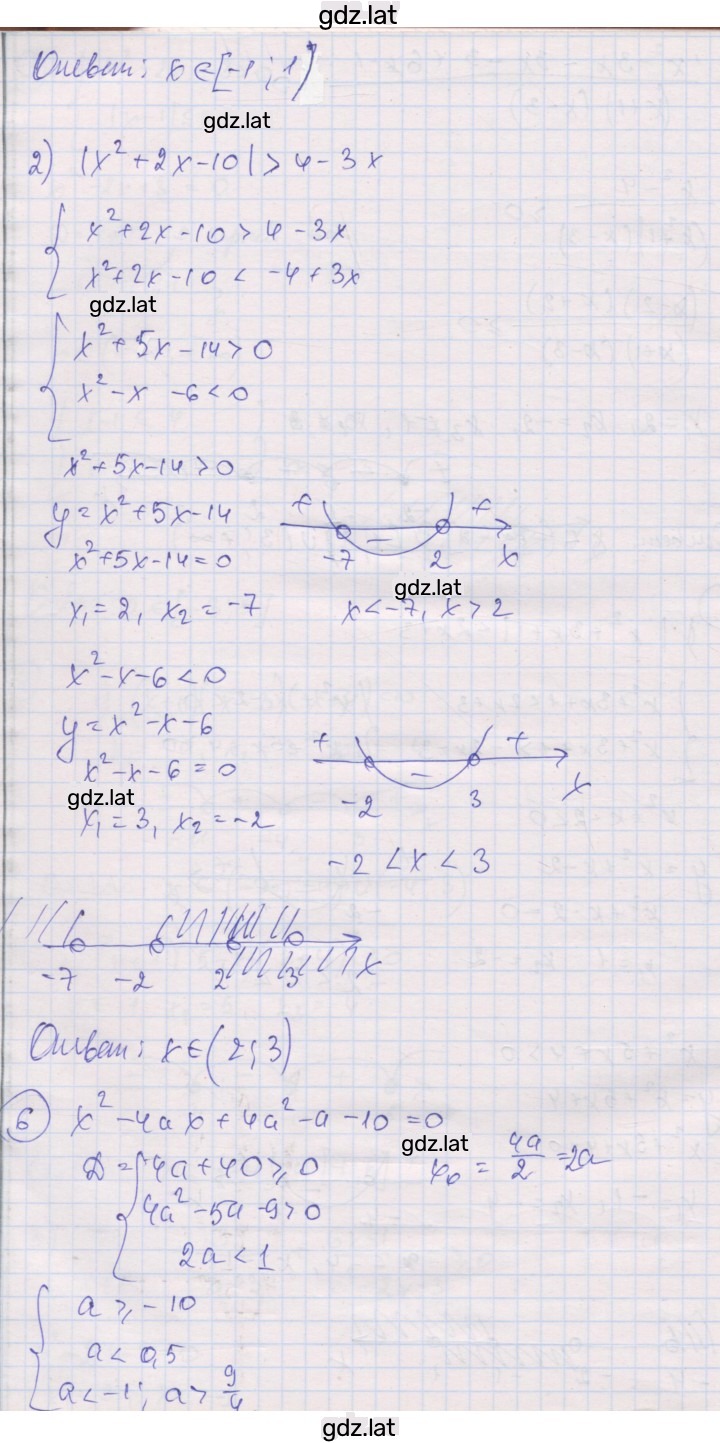 gdz.lat
Ответ: x ∈ [-1; 1)
gdz.lat
2) |x² + 2x - 10| > 4 - 3x
x² + 2x - 10 > 4 - 3x
x² + 2x - 10 < -4 + 3x
gdz.lat
x² + 5x - 14 > 0
x² - x - 6 < 0
x² + 5x - 14 > 0
y = x² + 5x - 14
+ - +
x² + 5x - 14 = 0
-7 2 x
gdz.lat
x₁ = 2, x₂ = -7
x < -7, x > 2
x² - x - 6 < 0
y = x² - x - 6
+ - +
x² - x - 6 = 0
-2 3 x
gdz.lat
x₁ = 3, x₂ = -2
-2 < x < 3
-7 -2 2 3 x
Ответ: x ∈ (2; 3)
6 x² - 4ax + 4a² - a - 10 = 0
gdz.lat
D = 4a + 40 ≥ 0
x₀ = 4a/2 = 2a
4a² - 5a - 9 > 0
2a < 1
a ≥ -10
a < 0,5
a < -1; a > 9/4
gdz.lat